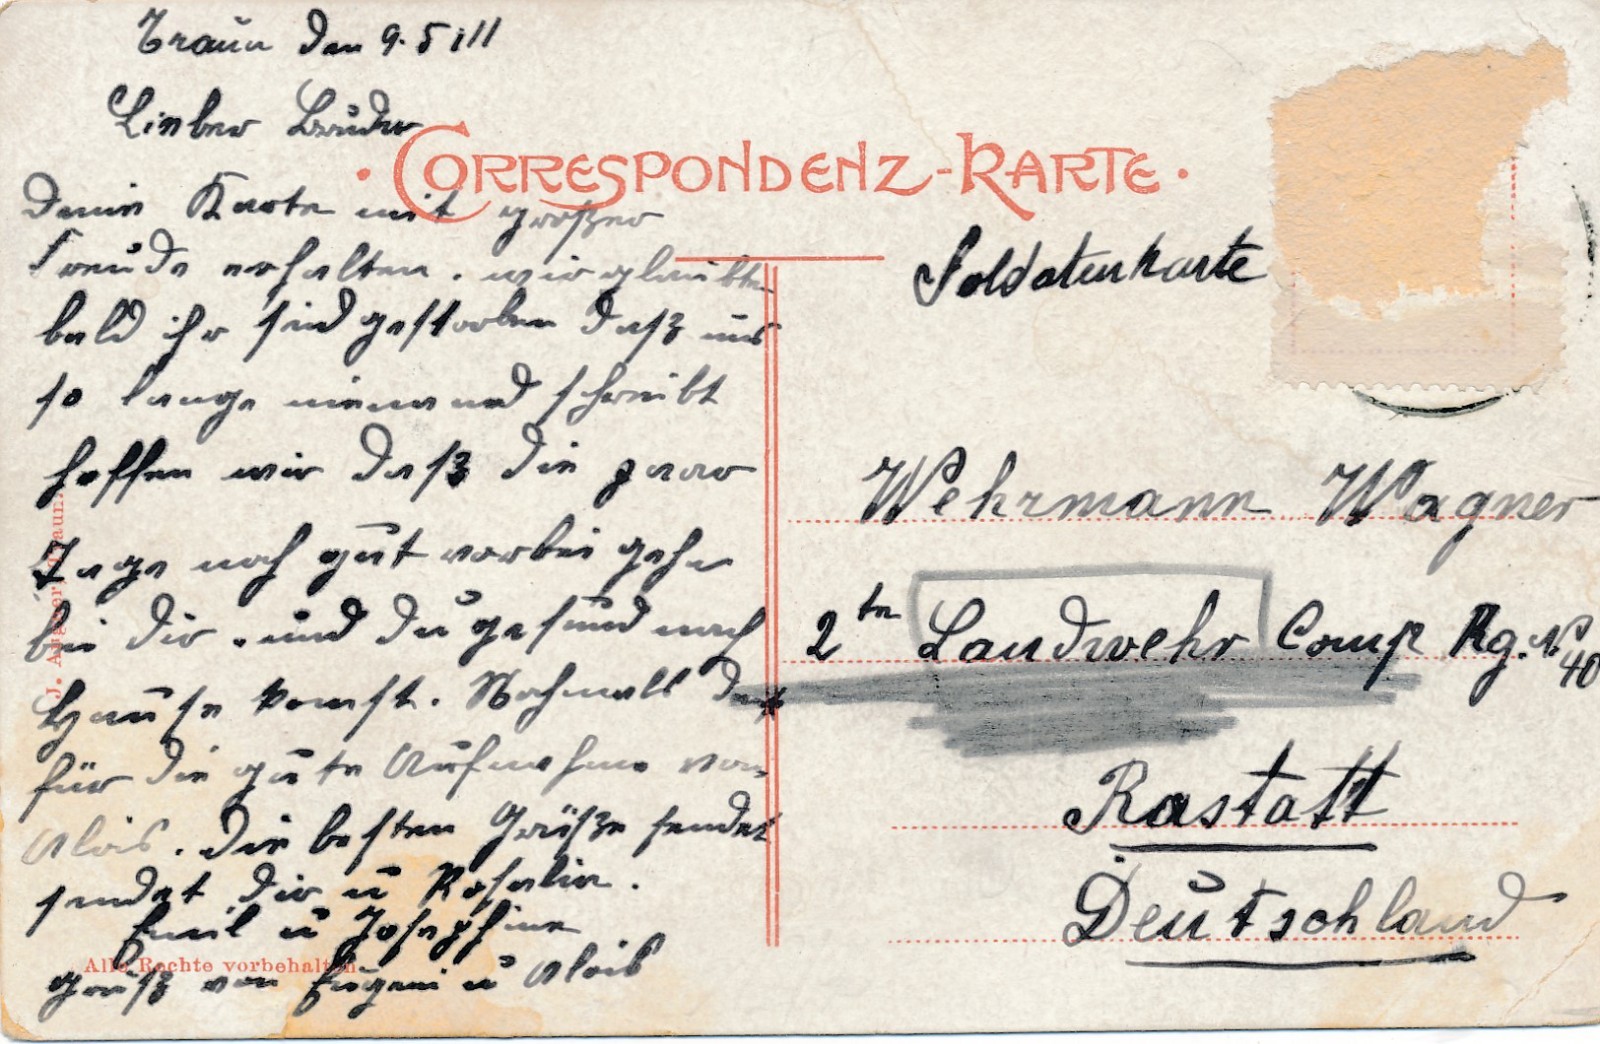 Traun den 9.5.11
Lieber Bruder
CORRESPONDENZ-KARTE
Deine Karte mit großer
Freude erhalten. wir glaubten
bald ihr seid gestorben daß uns
so lange niemand schreibt
hoffen wir daß die paar
Tage noch gut vorbei gehen
bei dir. und du gesund nach
Hause komst. Nochmals Dank
für die gute Aufnahme von
Alois. Die besten Grüße sendet
sendet dir u Rosalia.
Emil u Josephine
gruß von Eugeni u Alois
Alle Rechte vorbehalten.
Soldatenkarte
Wehrmann Wagner
2te Landwehr Comp Rg. N 40
Rastatt
Deutschland